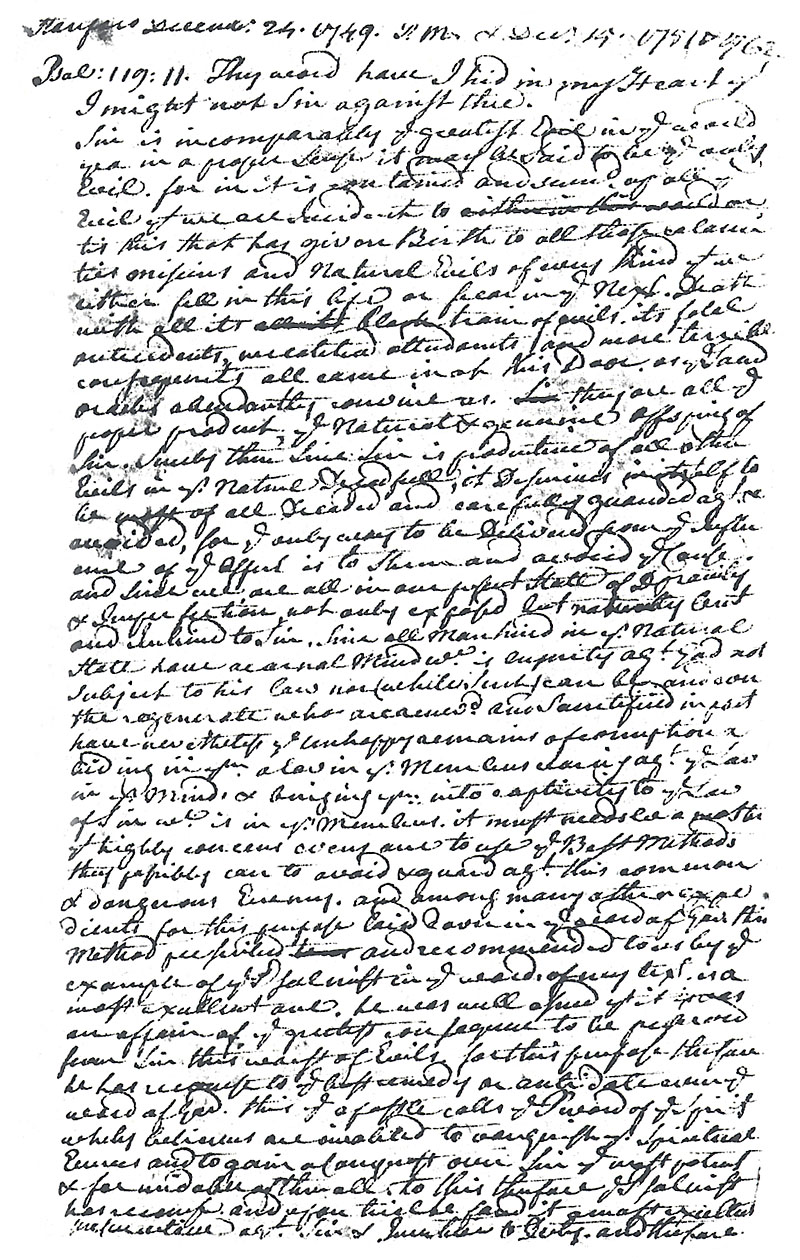 Decemr. 24. 1749. P.M. & Decr. 15. 1751 & 1762
Psal: 119: 11. Thy word have I hid in my Heart yt
I might not Sin against thee.
Sin is incomparably ye greatest Evil in ye world
yea in a proper Sense it may be said to be ye only
Evil. for in it is contained and summd of all ye
Evil yt we are incident to either in this world or
tis this that has given Birth to all those calami
ties miseries and Natural Evils of every kind yt we
either feel in this life or fear in ye Next. Death
with all its all its black train of evils. its fatal
antecedents, attendants and more terrible
consequents all came in at this Door. as ye Sacred
oracles abundantly convince us. Sin they are all ye
proper product, ye Natural & genuine offspring of
Sin. Surely then Since Sin is productive of all other
Evils in ys. Nature Dreadfull, it Deserves in itself to
be most of all Dreaded and carefully guarded agt. &
avoided, for ye only way to be Delivered from ye Influ
ence of ye Effect is to Shun and avoid ye Cause.
and Since we are all in our present State of Depravity
& Imperfection not only exposed but naturally bent
and Inclined to Sin. Since all Mankind in yr. Natural
State have a carnal Mind wc. is enmity agt. God not
Subject to his law nor (while Such) can be and even
the regenerate who are renewd. and Sanctified in part
have nevertheless ye unhappy remains of corruption a
biding in ym a law in yr. Members waring agt. ye Law
in yr. Minds & bringing ym. into captivity to ye Law
of Sin wc. is in yr. Members. it must needs be a matter
yt highly concerns every one to use ye Best Methods
they possibly can to avoid & guard agt. this common
& dangerous Enemy. and among many other expe
dients for this purpose laid Down in ye word of God this
Method prescribed and recommended to us by ye
example of ye Psalmist in ye words of my text. is a
most excellent one. he was well assured yt it was
an affair of ye greatest consequence to be preserved
from Sin this worst of Evils, for this purpose therefore
he has recourse to ye best remedy or antidote even ye
word of God. this ye apostle calls ye Sword of ye Spirit
whereby believers are enabled to vanquish yr. Spiritual
Enemies and to gain a Conquest over Sin ye most potent
& formidable of them all. to this therefore ye Psalmist
has recourse and upon trial he found it a most excellent
agt. Sin & to Duty. and therefore